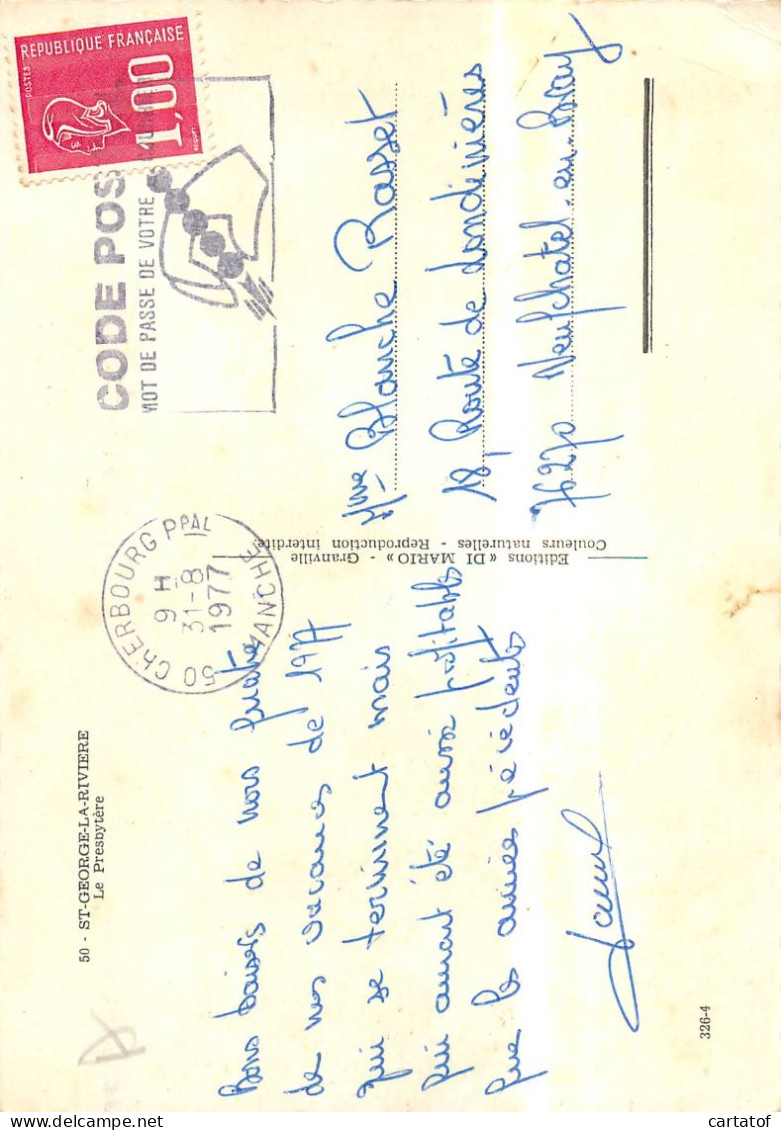 50 - ST-GEORGE-LA-RIVIERE
Le Presbytère
Bons baisers de nous quatre
de nos vacances de 1977
qui se terminent mais
qui auront été aussi profitables
que les années précédents
326-4
Editions « DI MARIO » - Granville
Couleurs naturelles - Reproduction interdite
REPUBLIQUE FRANÇAISE
POSTES
1,00
CODE POS
MOT DE PASSE DE VOTRE
50 CHERBOURG PPAL
9 H
31-8
1977
MANCHE
Mme Blanche Rasset
18, Route de Londinières
76270 Neufchatel-en-Bray
cartatof